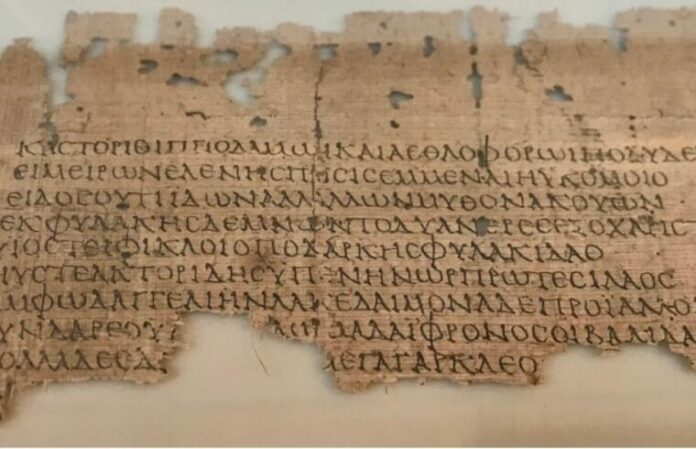 ΚΑΣΤΟΡΙΘΙΠΠΟΔΑΜΩΙΚΑΙΑΕΘΛΟΦΟΡΩΙΠΟΛΥΔΕ
ΕΙΜΕΙΡΩΝΕΛΕΝΗΣΠΟΣΙΣΕΜΜΕΝΑΙΗΥΚΟΜΟΙΟ
ΕΙΔΟΣΟΥΤΙΙΔΩΝΑΛΛΑΛΛΩΝΜΥΘΟΝΑΚΟΥΩΝ
ΕΚΦΥΛΑΚΗΣΔΕΜΝΩΝΤΟΔΥΑΝΕΡΕΣΕΞΟΧΑΡΙΣ
ΥΙΟΣΤΕΙΦΙΚΛΟΙΟΠΟΔΑΡΚΗΣΦΥΛΑΚΙΔΑΟ
ΗΥΣΤΕΑΚΤΟΡΙΔΗΣΥΠΕΡΗΝΩΡΠΡΩΤΕΣΙΛΑΟΣ
ΑΜΦΩΔΑΓΓΕΛΙΗΝΛΑΚΕΔΑΙΜΟΝΑΔΕΠΡΟΪΑΛΛΟ
ΥΝΔΑΡΕΟΥ ΜΑΔΑΪΦΡΟΝΟΣΟΙΒΑΛΙΔΑ
ΟΛΛΑΔΕΣΔ ΜΕΓΑΓΑΡΚΛΕΟ